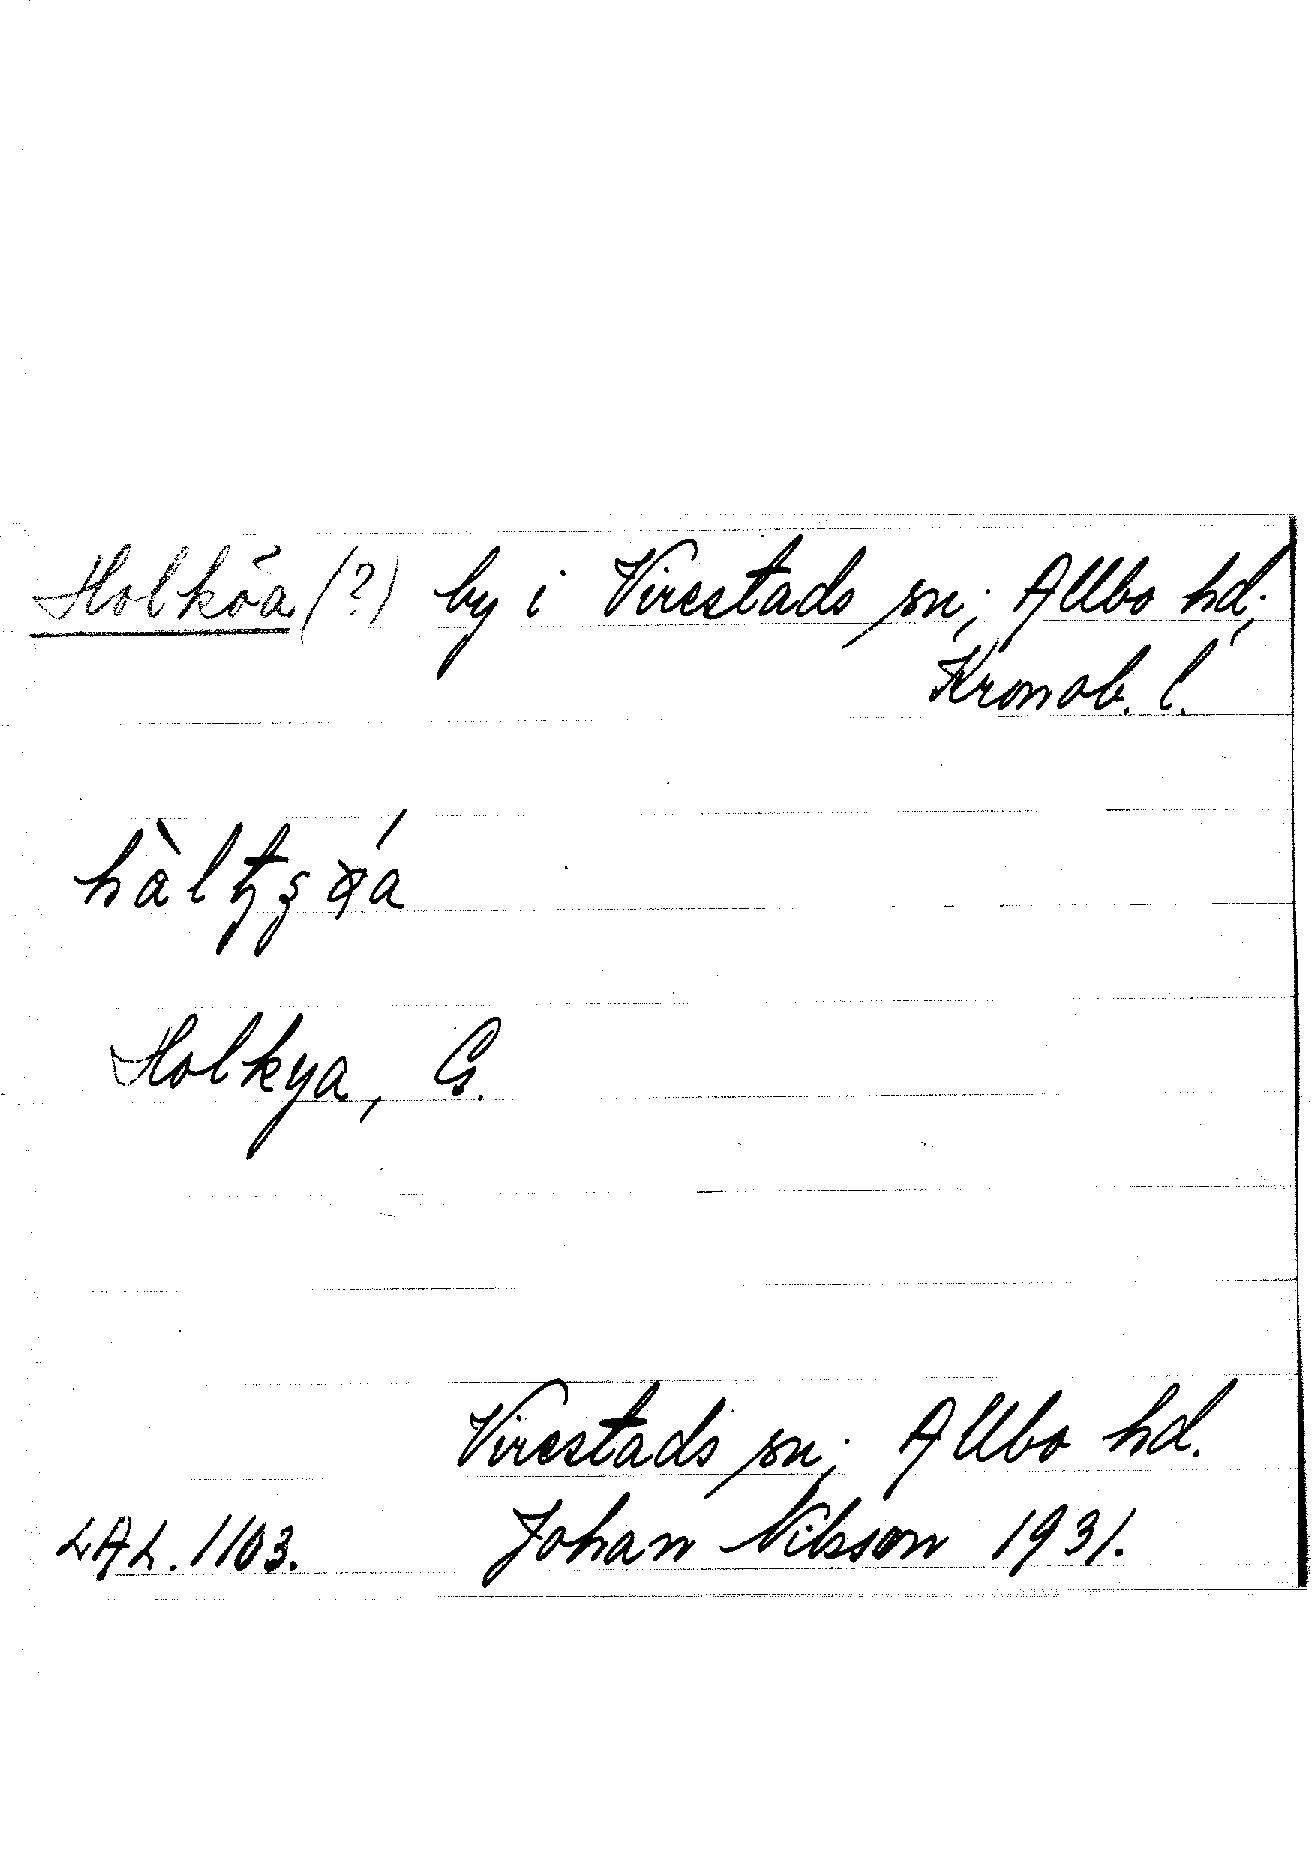 Holköa (?) by i Virestads sn; Allbo hd;
Kronob. l.
Holkya, G.
Virestads sn; Allbo hd.
LAL. 1103. Johan Nilsson 1931.